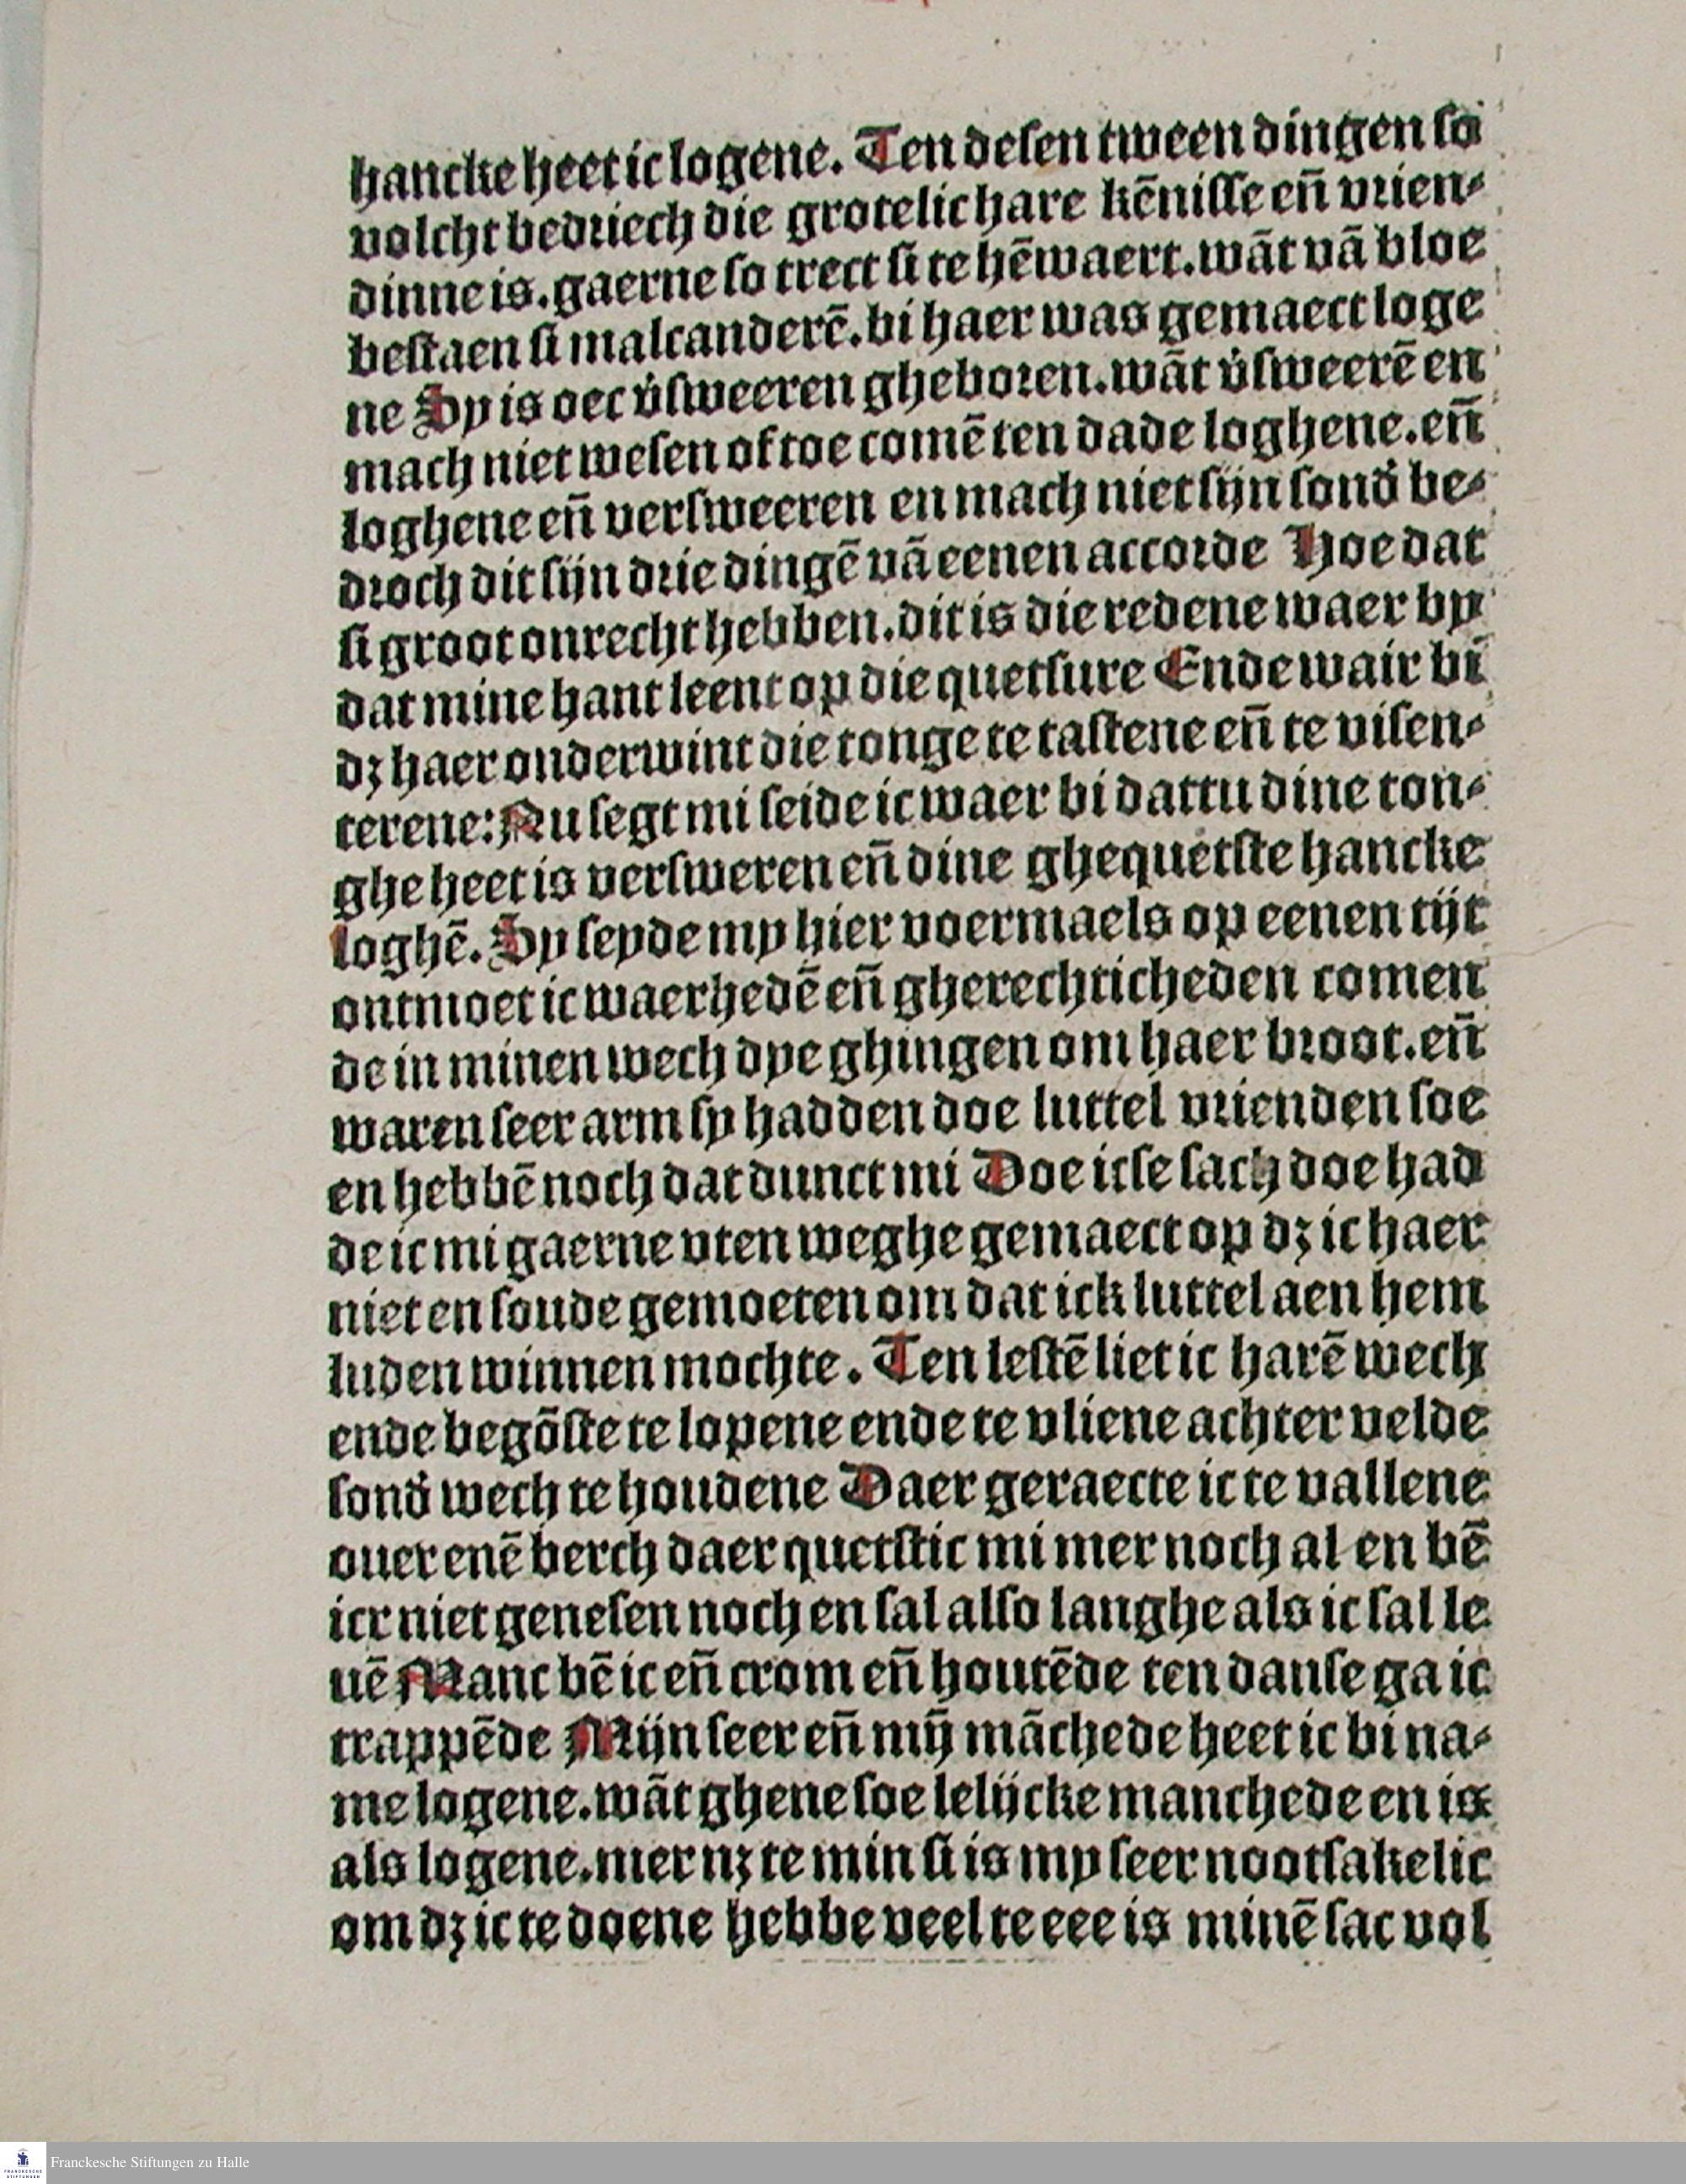 hancke heet ic logene. Ten desen tween dingen so
volcht bedriech die grotelic hare kēnisse en̄ vrien-
dinne is. gaerne so trect si te hēwaert. wāt vā bloe
bestaen si malcanderē. bi haer was gemaect loge
ne Sy is oec v̓sweeren gheboren. wāt v̓sweerē en
mach niet wesen of toe comē ten dade loghene. en̄
loghene en̄ versweeren en mach niet sijn sond̓ be-
droch dit sijn drie dingē vā eenen accorde Hoe dat
si groot onrecht hebben. dit is die redene waer by
dat mine hant leent op die quetsure Ende wair bi
dz haer onderwint die tonge te tastene en̄ te visen-
terene: Nu segt mi seide ic waer bi dattu dine ton-
ghe heet is versweren en̄ dine ghequetste hancke
loghē. Sy seyde my hier voermaels op eenen tijt
ontmoet ic waerhedē en̄ gherechticheden comen
de in minen wech dye ghingen om haer broot. en̄
waren seer arm sy hadden doe luttel vrienden soe
en hebbē noch dat dunct mi Doe icse sach doe had
de ic mi gaerne vten weghe gemaect op dz ic haer
niet en soude gemoeten om dat ick luttel aen hem
luden winnen mochte. Ten lestē liet ic harē wech
ende begōste te lopene ende te vliene achter velde
sond̓ wech te houdene Daer geraecte ic te vallene
ouer enē berch daer quetstic mi mer noch al en bē
icr niet genesen noch en sal also langhe als ic sal le
uē Manc bē ic en̄ crom en̄ houtēde ten danse ga ic
trappēde Mijn seer en̄ mȳ māchede heet ic bi na-
me logene. wāt ghene soe lelijcke manchede en is
als logene. mer nz te min si is my seer nootsakelic
om dz ic te doene hebbe veel te eee is minē sac vol
Franckesche Stiftungen zu Halle